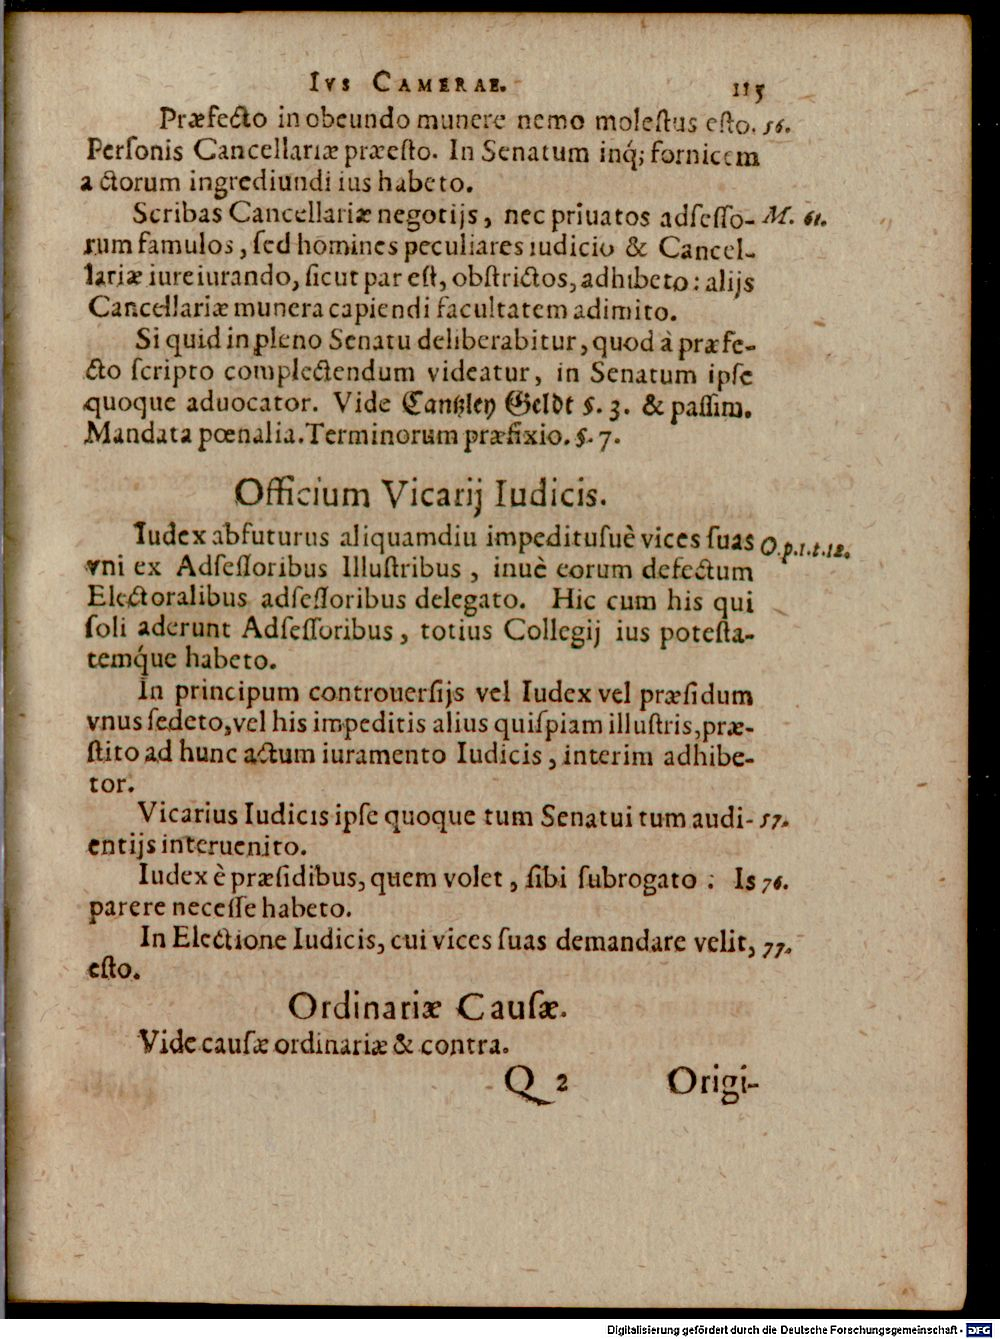 IVS CAMERAE. 115
Præfecto in obeundo munere nemo molestus esto. 56.
Personis Cancellariæ præesto. In Senatum inq́; fornicem
actorum ingrediundi ius habeto.
Scribas Cancellariæ negotijs, nec priuatos adsesso- M. 61.
rum famulos, sed homines peculiares iudicio & Cancel-
lariæ iureiurando, sicut par est, obstrictos, adhibeto: alijs
Cancellariæ munera capiendi facultatem adimito.
Si quid in pleno Senatu deliberabitur, quod à præfe-
cto scripto complectendum videatur, in Senatum ipse
quoque aduocator. Vide Cantzley Geldt §. 3. & passim.
Mandata pœnalia. Terminorum præfixio. §. 7.
Officium Vicarij Iudicis.
Iudex abfuturus aliquamdiu impeditusuè vices suas O.p.1.t.12.
vni ex Adsessoribus Illustribus, inuè eorum defectum
Electoralibus adsessoribus delegato. Hic cum his qui
soli aderunt Adsessoribus, totius Collegij ius potesta-
temq́ue habeto.
In principum controuersijs vel Iudex vel præsidum
vnus sedeto, vel his impeditis alius quispiam illustris, præ-
stito ad hunc actum iuramento Iudicis, interim adhibe-
tor.
Vicarius Iudicis ipse quoque tum Senatui tum audi- 57.
entijs interuenito.
Iudex è præsidibus, quem volet, sibi subrogato: Is 76.
parere necesse habeto.
In Electione Iudicis, cui vices suas demandare velit, 77.
esto.
Ordinariæ Causæ.
Vide causæ ordinariæ & contra.
Q 2 Origi-
Digitalisierung gefördert durch die Deutsche Forschungsgemeinschaft - DFG